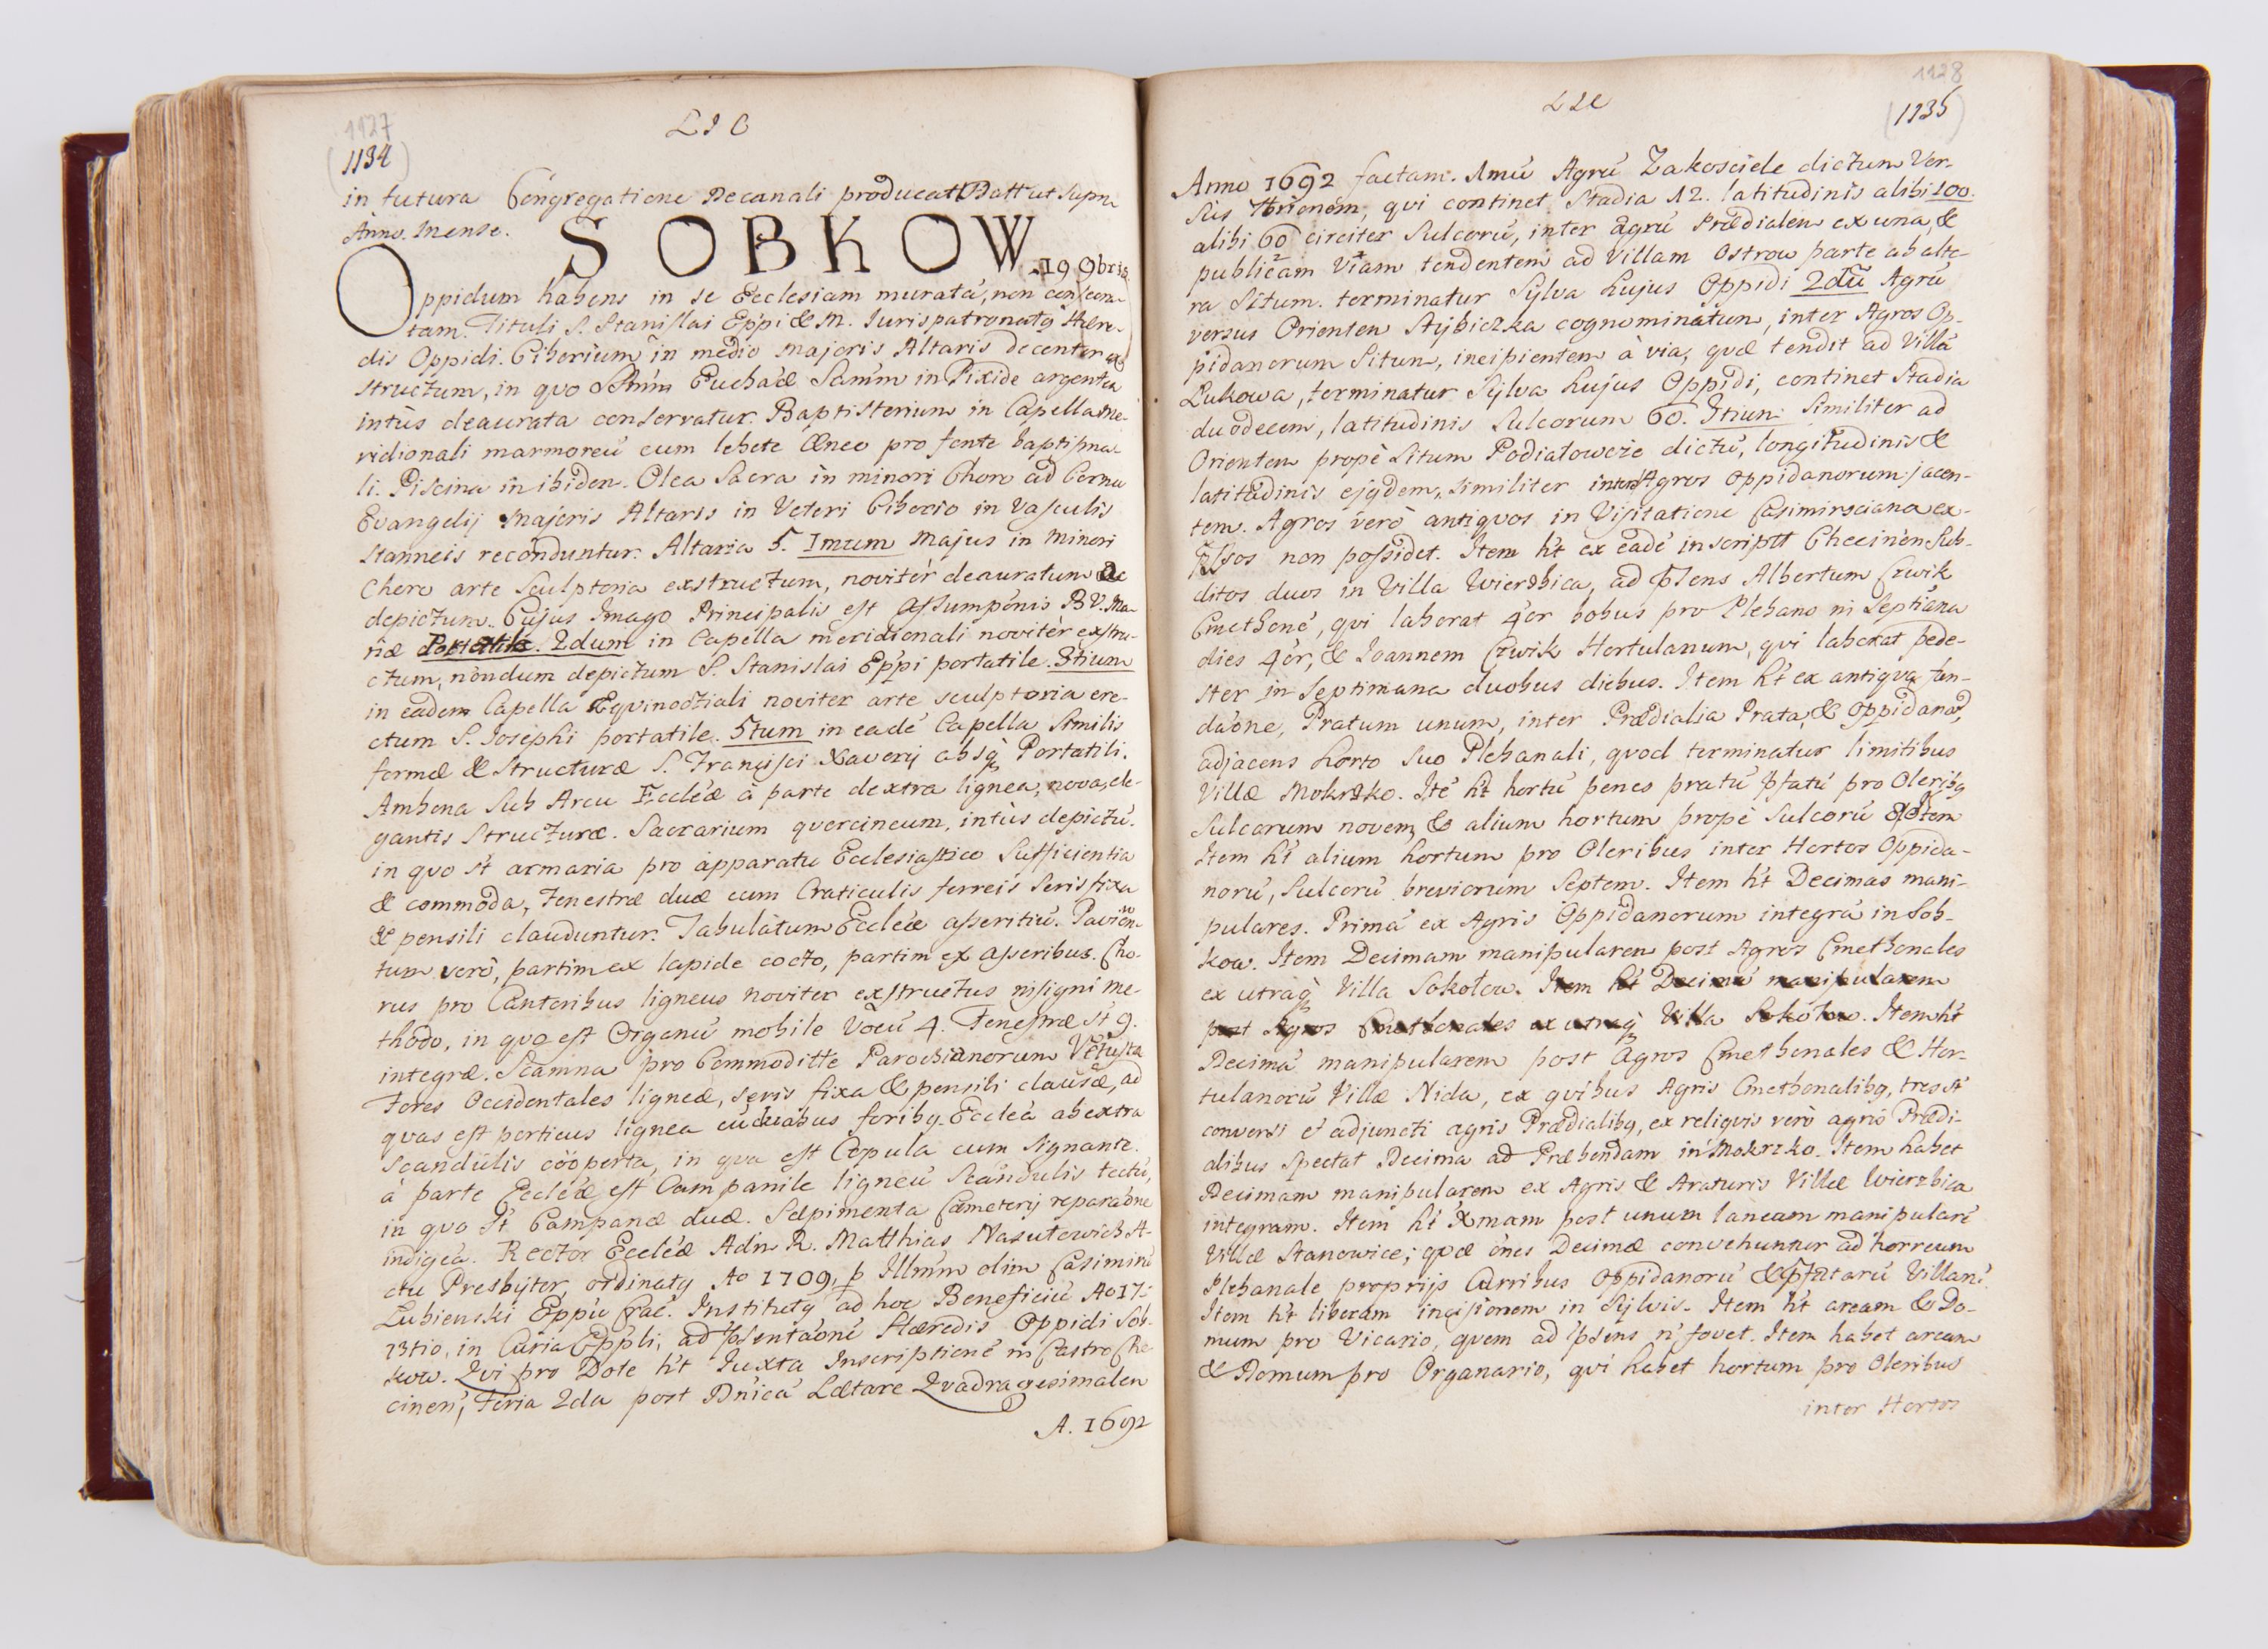 1127
(1134)
L I C
in futura Congregatione Decanali producat. Datt ut supra
Anno. Mense.
SOBKOW. 19 9bris.
Oppidum habens in se Ecclesiam muratã, non consecra-
tam. Tituli S. Stanislai Eppi & M. Jurispatronatq Hære-
dis Oppidi. Ciborium in medio Majoris Altaris decenter ex-
structum, in quo Eucháæ Samm in Pixide argentea
intùs deaurata conservatur. Baptisterium in Capella Me-
ridionali marmoreũ cum lebete æneo pro fonte baptisma-
li. Piscina in ibidem. Olea Sacra in minori Choro ad Cornu
Evangelij Majoris Altaris in Veteri Ciborio in Vasculis
stanneis reconduntur. Altaria 5. Imum Majus in Minori
Choro arte Sculptoria exstructum, novitèr deauratum ac
depictum. Cujus Imago Principalis est Assumpónis B.V. Ma-
riæ Portatile. 2dum in Capella meridionali novitèr exstru-
ctum, nondum depictum S. Stanislai Eppi portatile. 3tium
in eadem Capella Æquinoctiali noviter arte sculptoria ere-
ctum S. Josephi portatile. 5tum in eadé Capella Similis
formæ & Structuræ S. Francisci Xaverij absq Portatili.
Ambona Sub Arcu Eccléæ à parte dextra lignea, nova, ele-
gantis Structuræ. Sacrarium quercineum, intùs depictũ.
in quo st armaria pro apparatu Ecclesiastico Sufficientia
& commoda, Fenestræ duæ cum Craticulis ferreis Seris fixa
& pensili clauduntur. Tabulatum Eccléæ asseritiũ. Pavimen-
tum verò, partim ex lapide cocto, partim ex asseribus. Cho-
rus pro Cantoribus ligneus noviter exstructus insigni me-
thodo, in quo est Organũ mobile Vocũ 4. Fenestræ st 9.
integræ. Scamna pro Commoditte Parochianorum Vetusta
Fores Occidentales ligneæ, seris fixa & pensili clausæ, ad
quas est porticus lignea cũ duabus foribq Eccleá ab extra
Scandulis coóperta, in qua est Copula cum Signante.
à parte Eccléæ est Campanile ligneũ Scandulis tectũ,
in quo st Campanæ duæ. Sæpimenta Cæmeterij reparaóne
indigéa. Rector Eccléæ Adm R. Matthias Nasutowich A-
ctu Presbyter, ordinatq Ao 1709, p Illmm olim Casimirũ
Lubienski Eppũ Crac. Institutq ad hoc Beneficiũ Ao 17-
13tio, in Curia Eppli, ad psentaónẽ Hæredis Oppidi Sob-
kow. Qui pro Dote ht Juxta Inscriptionẽ in Castro Che
cinen, Feria 2da post Dnicá Lætare Quadragesimalem
A. 1692
1128
(1135)
L I C
Anno 1692 factam. 1mũ Agrũ Zakosciele dictum Ver-
sus 7trionem, qui continet Stadia 12. latitudinis alibi 100.
alibi 60 circiter Sulcorũ, inter agrũ Prædialem ex una, &
publicam Viam tendentem ad Villam Ostrow parte ab alte-
ra Situm. terminatur Sylva hujus Oppidi 2dũ Agrũ
versus Orientem Stybiczka cognominatum, inter Agros Op-
pidanorum Situm, incipientem à via, quæ tendit ad Villã
Lukowa, terminatur Sylva hujus Oppidi, continet Stadia
duodecem, latitudinis Sulcorum 60. 3tium Similiter ad
Orientem propè Situm Podiatowcze dictũ, longitudinis &
latitudinis ejqdem, Similiter inter Agros Oppidanorum jacen-
tem. Agros verò antiquos in Visitatione Casimirsciana ex-
pssos non possidet. Item ht ex eadẽ inscriptt Checinen Sub-
ditos duos in Villa Wierzbica, ad psens Albertum Czwik
Cmethonẽ, qui laborat 4or bobus pro Plebano in Septiána
dies 4or, & Joannem Czwik Hortulanum, qui laborat pede-
ster in Septimana duobus diebus. Item ht ex antiqva fun-
daóne, Pratum unum, inter Prædialia Prata, & Oppidana,
adjacens horto Suo Plebanali, quod terminatur limitibus
Villæ Mokrzko. Itẽ ht hortũ penes pratũ pfatũ pro Oleribq
Sulcorum novem, & alium hortum propè Sulcorũ
Item ht alium hortum pro Oleribus inter Hortos Oppida-
norũ, Sulcorũ breviorum Septem. Item ht Decimas mani-
pulares. Primã ex Agris Oppidanorum integrã in Sob-
kow. Item Decimam manipularem post Agros Cmethonales
ex utraq Villa Sokołow. Item ht Decimã manipularem
post Agros Cmethonales ex utraq Villa Sokołow. Item ht
Decimã manipularem post Agros Cmethonales & Hor-
tulanorũ Villæ Nida, ex quibus Agris Cmethonalibq, tres st
conversi & adjuncti agris Prædialibq, ex reliquis verò agris Prædi-
alibus spectat Decima ad Præbendam in Mokrzko. Item habet
Decimam manipularem ex Agris & Araturis Villæ Wierzbica
integram. Item ht Xmam post unum laneum manipularẽ
Villæ Stanowice; quæ ónes Decimæ convehuntur ad horreum
Plebanale proprijs Curribus Oppidanorũ & pfatarũ Villarũ.
Item ht liberam incisionem in Sylvis. Item ht aream & Do-
mum pro Vicario, quem ad psens ñ fovet. Item habet aream
& Domum pro Organario, qui habet hortum pro Oleribus
inter Hortos